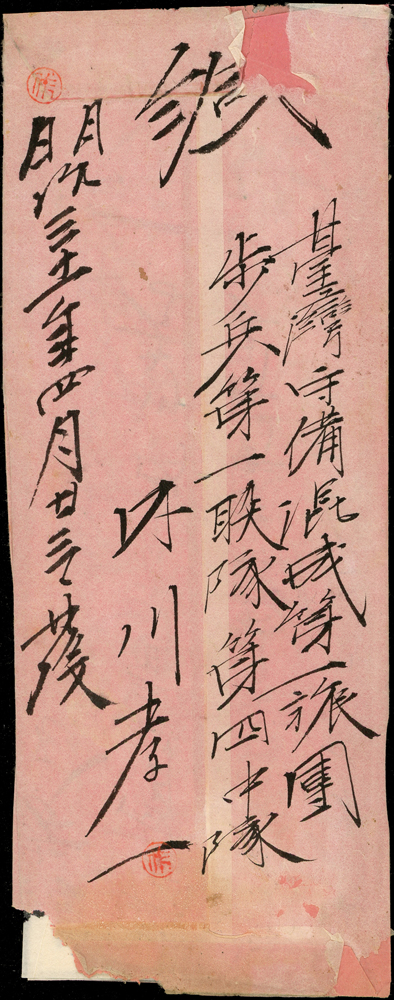 緘
臺灣守備混成第一旅團
歩兵第一聯隊第四中隊
川孝一
明治三十一年四月廿三日發